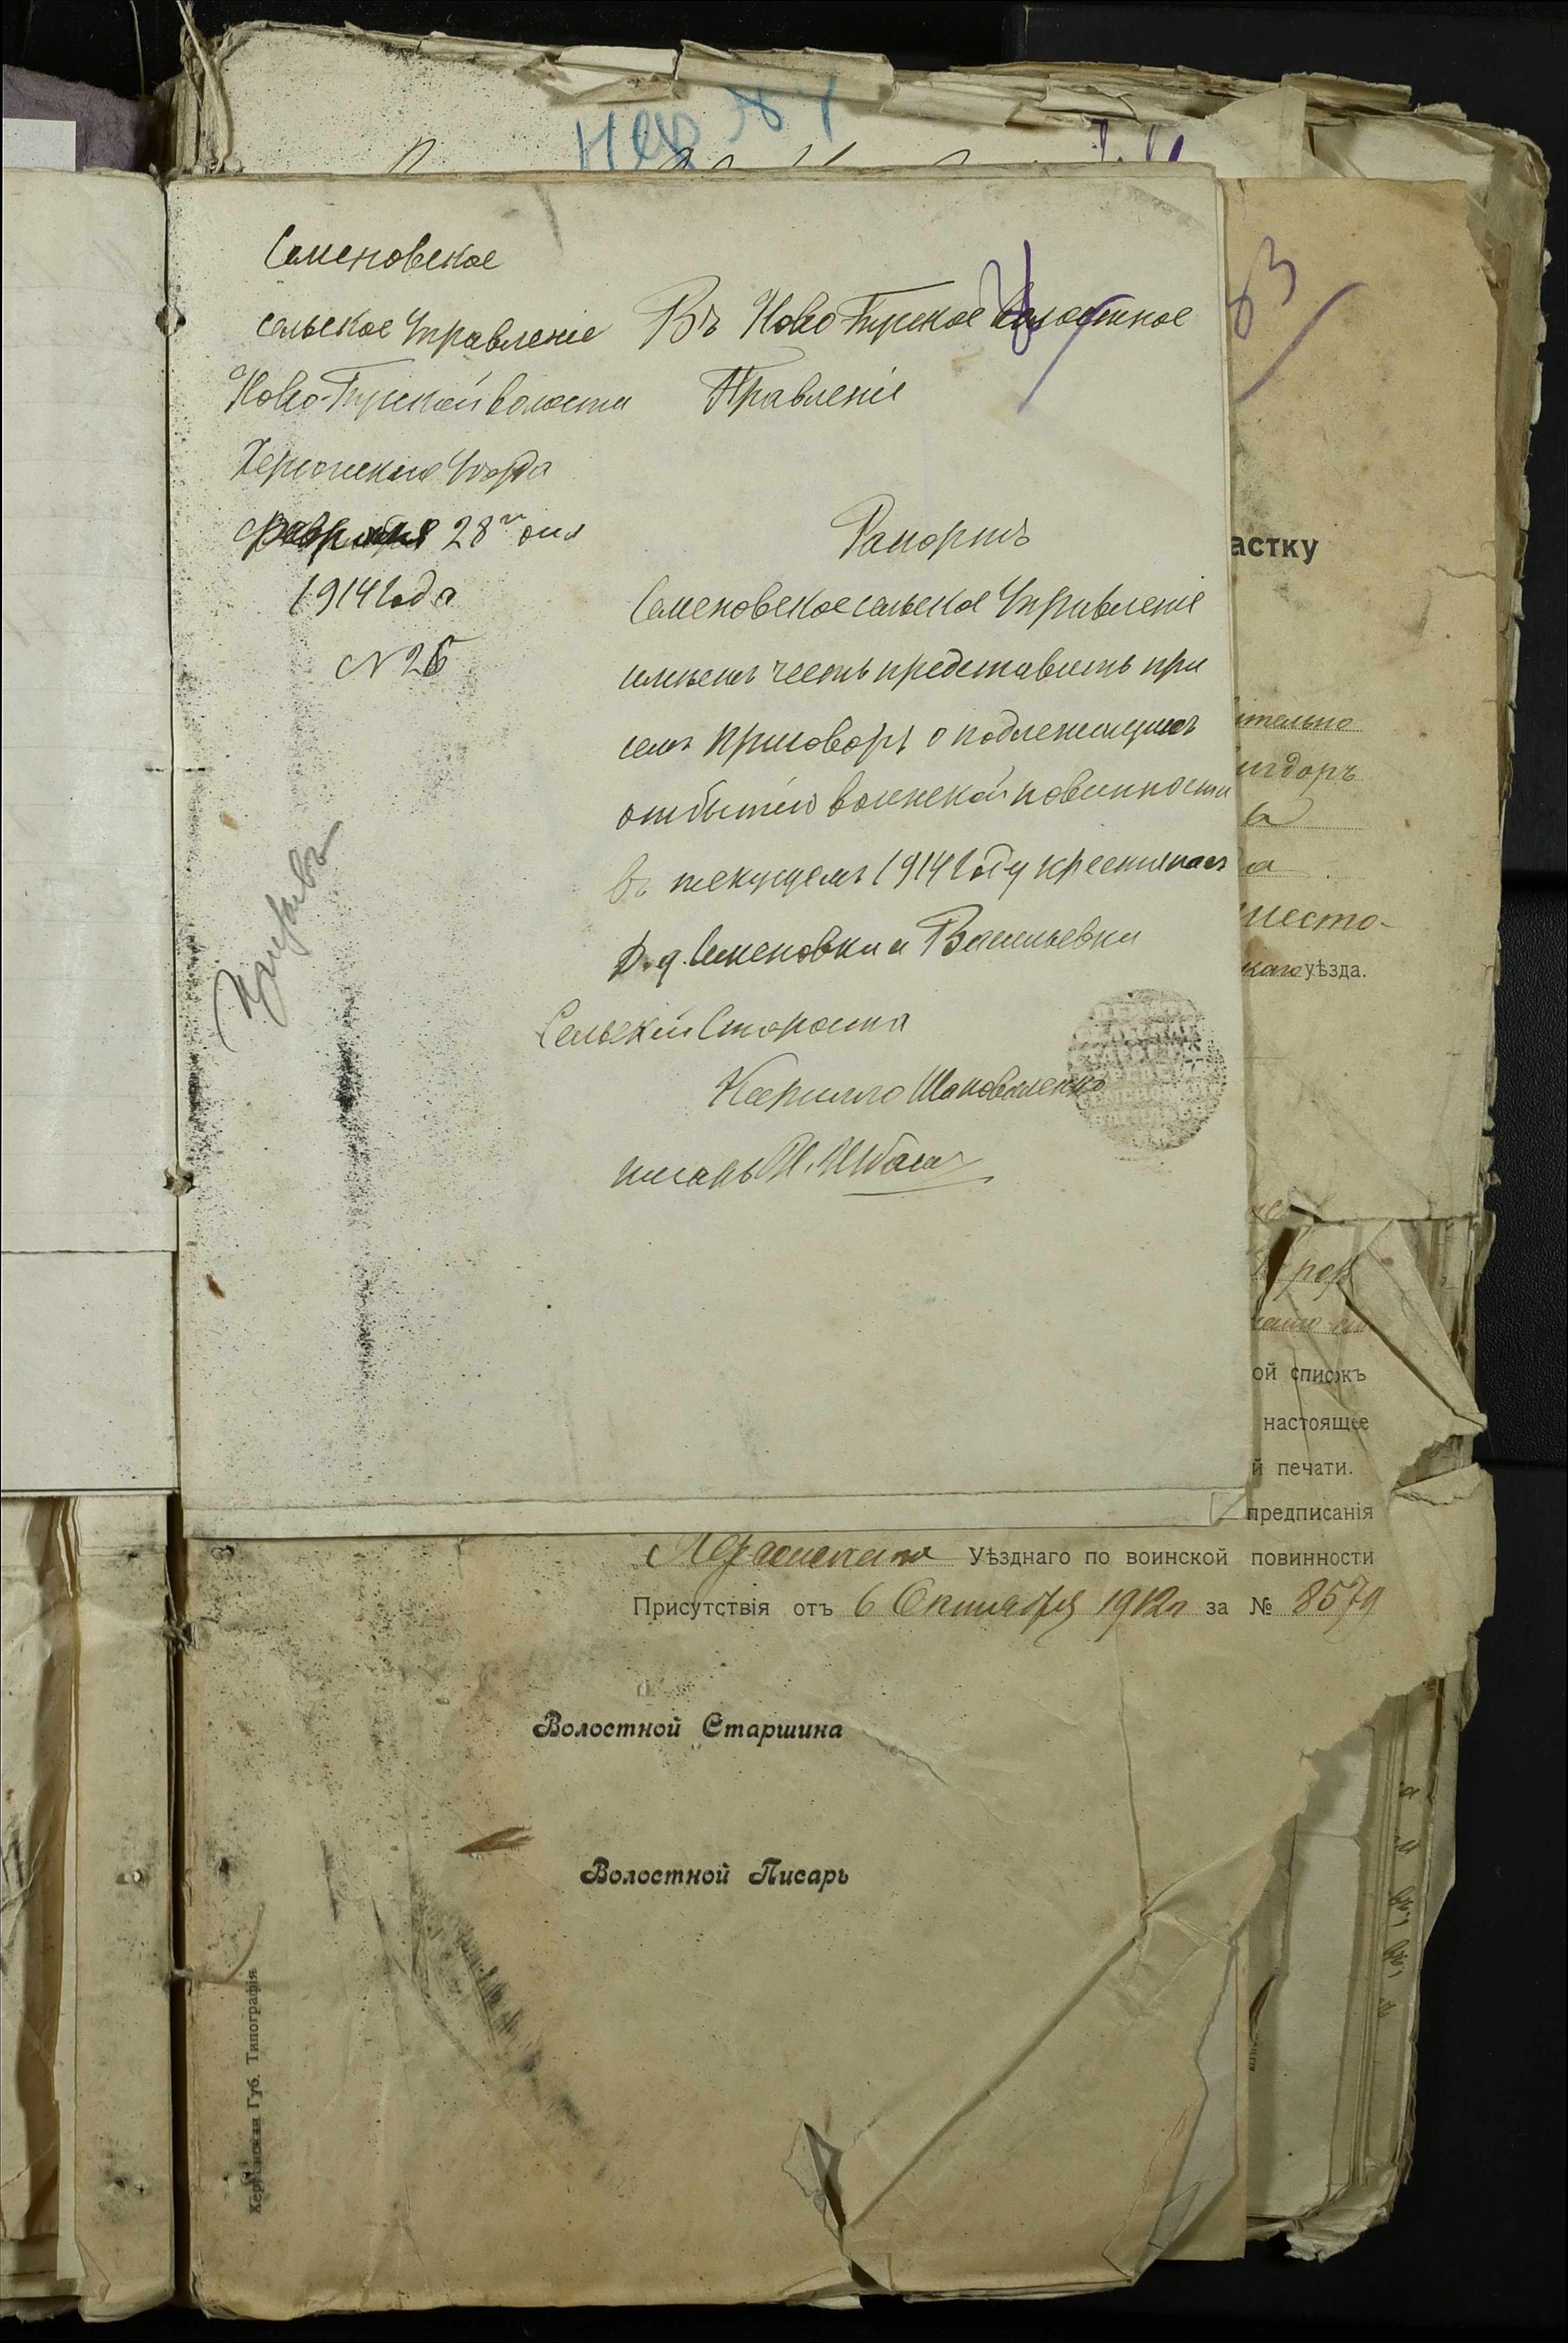 Нер № 1
Семеновское
сельское Управленіе
Ново-Бугской волости
Херсонскаго Уѣзда
Февраля 28 го дня
1914 года
№ 26
Въ Ново Бугское Волостное
Правленіе
Рапортъ
Семеновское сельское Управленіе
имѣетъ честь представить при
семъ приговоръ о подлежащихъ
отбытію воинской повинности
въ текущемъ 1914 году крестьянъ
д.д. Семеновки и Васильевки
Сельскій Староста
Кирилло Шаповаленко
писарь
83
астку
ительно
а
мѣсто-
каго уѣзда.
ой списокъ
настоящее
й печати.
предписанія
Херсонскаго Уѣзднаго по воинской повинности
Присутствія отъ 6 Октября 1912 г за № 8579
Волостной Старшина
Волостной Писарь
Херсонская Губ. Типографія